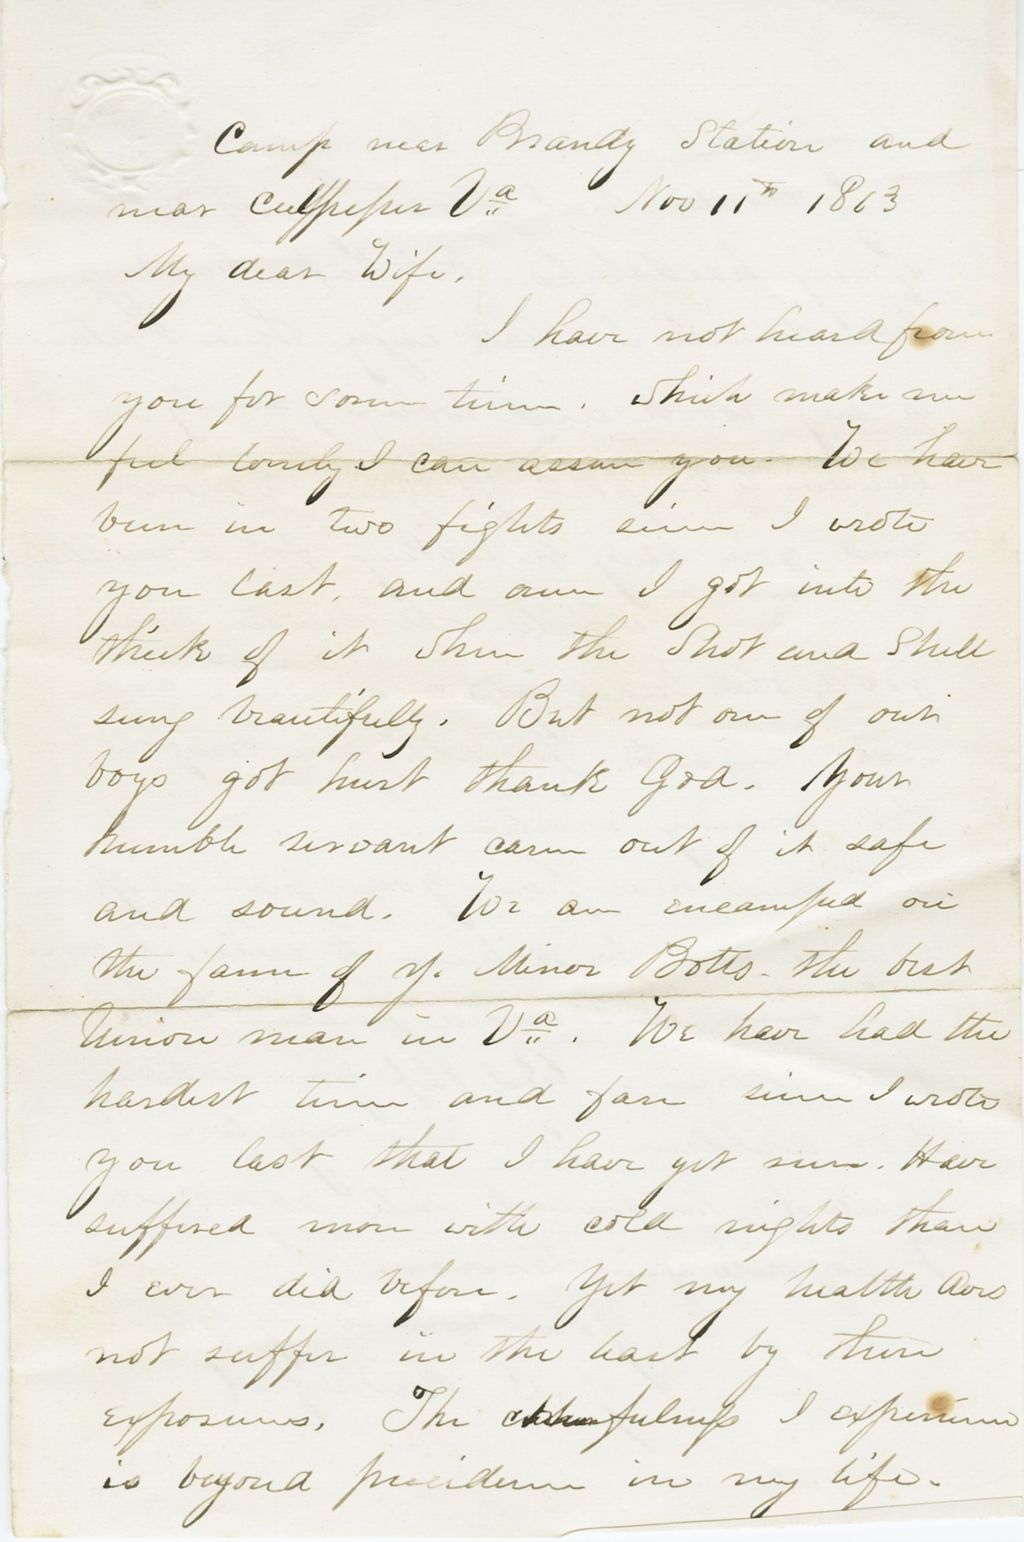 Camp near Brandy Station and
near Culpeper Va Nov 11th 1863
My dear Wife.
I have not heard from
you for some time. Which make me
feel lonely I can assure you. We have
been in two fights since I wrote
you last, and once I got into the
thick of it when the Shot and Shell
sung beautifully. But not one of our
boys got hurt thank God. Your
humble servant came out of it safe
and sound. We are encamped on
the farm of J. Minor Botts. the best
Union man in Va. We have had the
hardest time and fare since I wrote
you last that I have yet seen. Have
suffered more with cold nights than
I ever did before. Yet my health does
not suffer in the least by these
exposures. The cheerfulness I experience
is beyond precidence in my life.